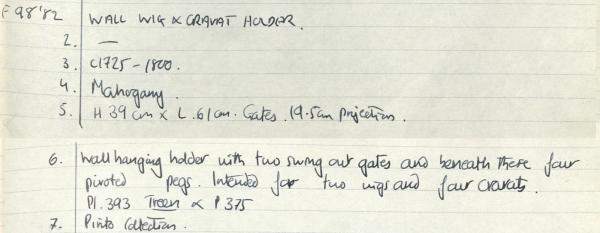 F98'82 WALL WIG & CRAVAT HOLDER.
2. —
3. C1725-1800.
4. Mahogany.
5. H 39 cm x L .61cm. Gates .19.5cm projection.
6. Wall hanging holder with two swing out gates and beneath these four
pivoted pegs. Intended for two wigs and four cravats.
Pl. 393 Treen & P 375
7. Pinto Collection.